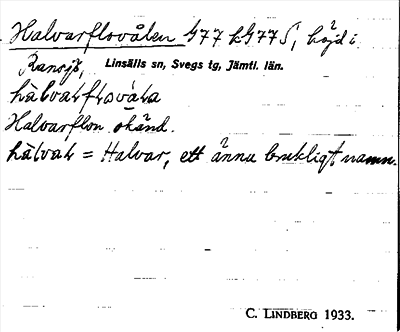 Halvarflovålen G77 k G77 S, höjd i
Ransjö, Linsälls sn, Svegs tg, Jämtl. län.
hàlvaɫfɫová̀ɫa
Halvarflon okänd.
hàlvaɫ = Halvar, ett ännu brukligt namn.
C. LINDBERG 1933.